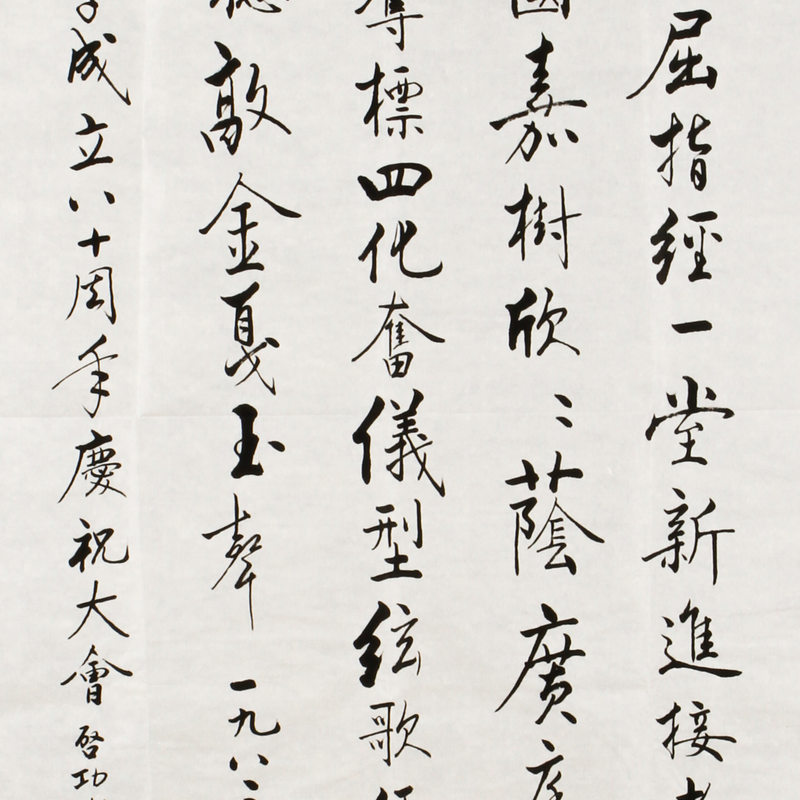 屈指經一堂新進接
國嘉樹欣〻蔭廣庭
奪標四化奮儀型絃歌
聽敲金戛玉聲一九八二
成立八十周年慶祝大會啓功